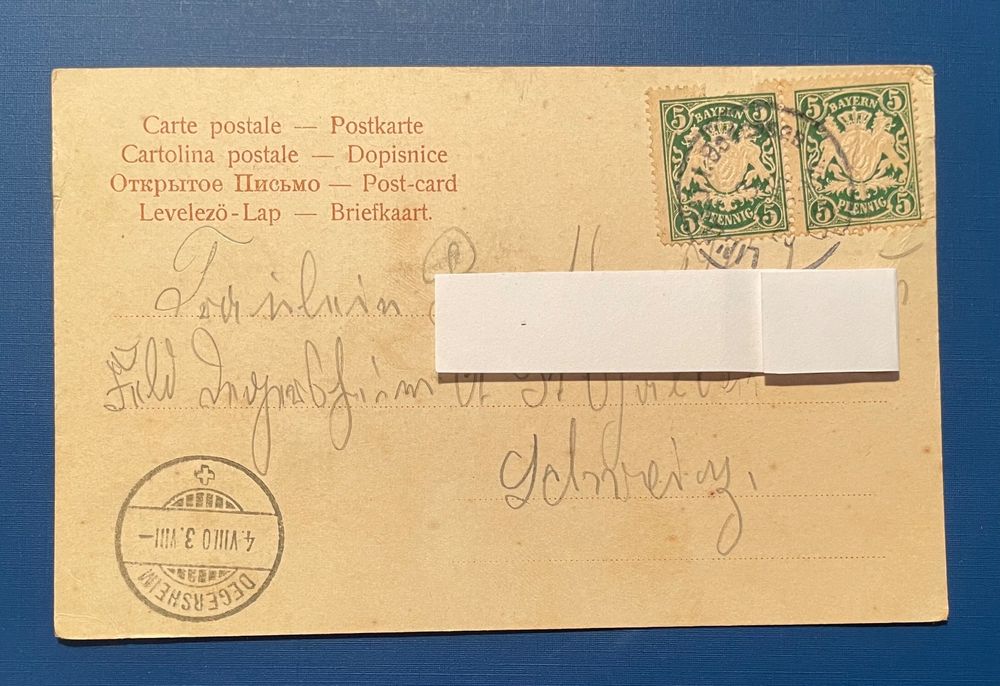 Carte postale — Postkarte
Cartolina postale — Dopisnice
Открытое Письмо — Post-card
Levelező-Lap — Briefkaart.
5 BAYERN 5
5 PFENNIG 5
5 BAYERN 5
5 PFENNIG 5
Fräulein
Feld Degersheim Ct St Gallen
Schweiz.
4.VIII.03.VIII—
DEGERSHEIM